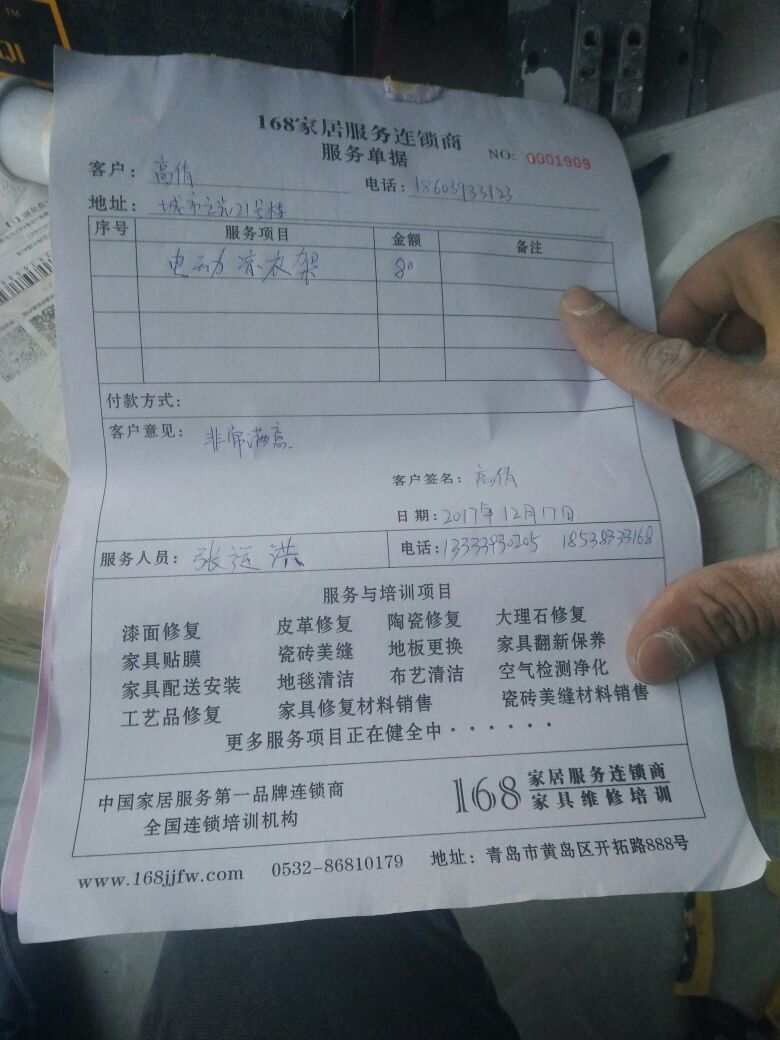 168家居服务连锁商
服务单据
NO: 0001909
客户: 高倩
电话: 18603933123
地址: 城市之光21号楼
序号 服务项目 金额 备注
电动凉衣架 80
付款方式:
客户意见: 非常满意
客户签名: 高倩
日期: 2017年12月17日
服务人员: 张运洪
电话: 13333930205 18538333168
服务与培训项目
漆面修复 皮革修复 陶瓷修复 大理石修复
家具贴膜 瓷砖美缝 地板更换 家具翻新保养
家具配送安装 地毯清洁 布艺清洁 空气检测净化
工艺品修复 家具修复材料销售 瓷砖美缝材料销售
更多服务项目正在健全中······
中国家居服务第一品牌连锁商
全国连锁培训机构
168 家居服务连锁商
家具维修培训
www.168jjfw.com 0532-86810179 地址: 青岛市黄岛区开拓路888号